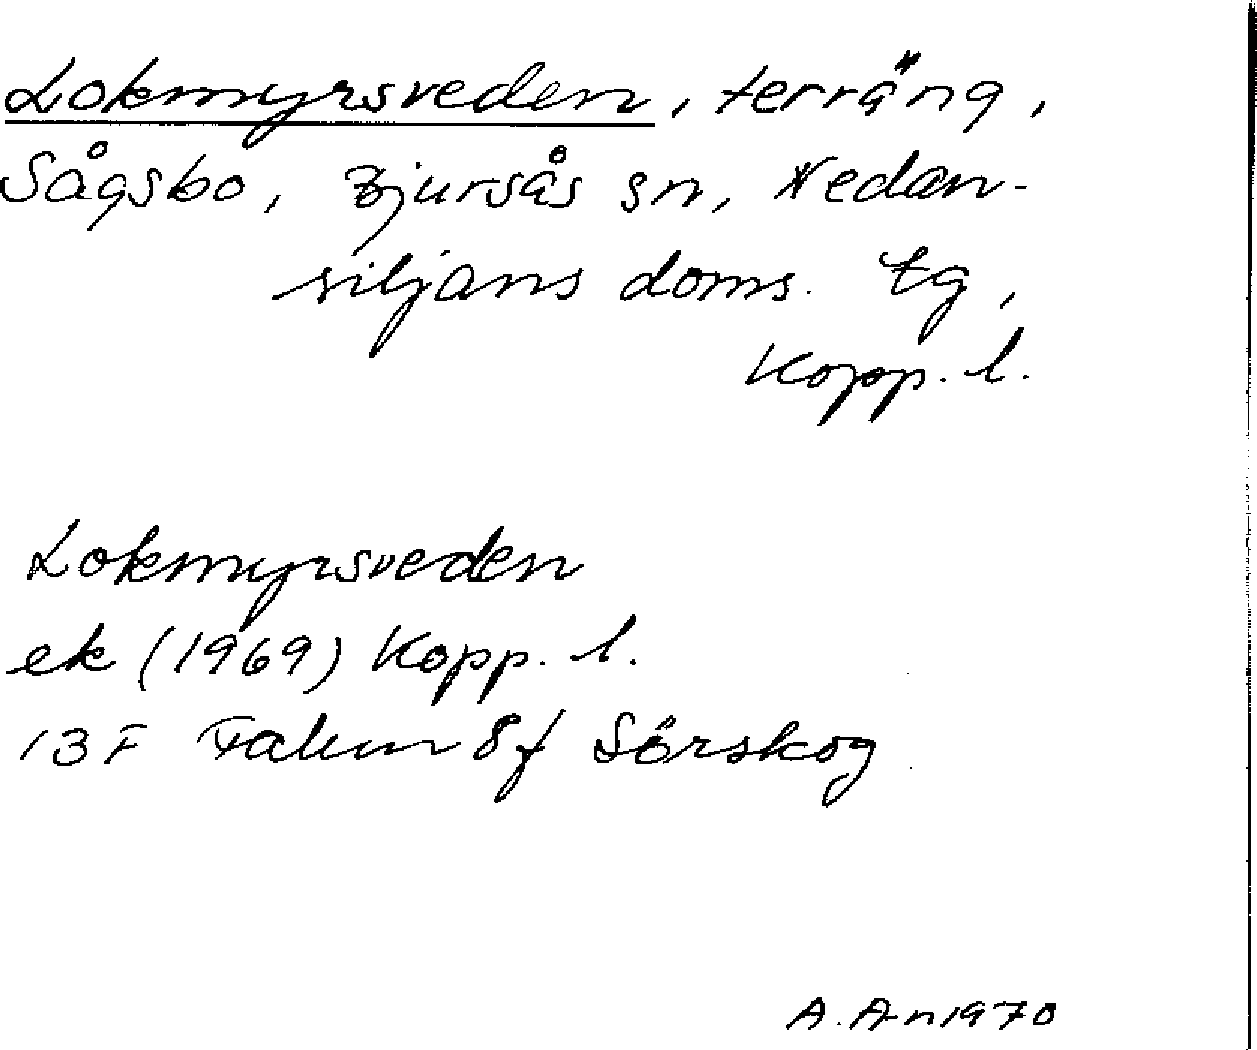 Lokmyrsveden, terräng,
Sågsbo, Bjursås sn, Nedan-
siljans doms. tg,
Kopp. l.
Lokmyrsveden
ek (1969) Kopp. l.
13F Falun 8f Sörskog
A. A-n 1970